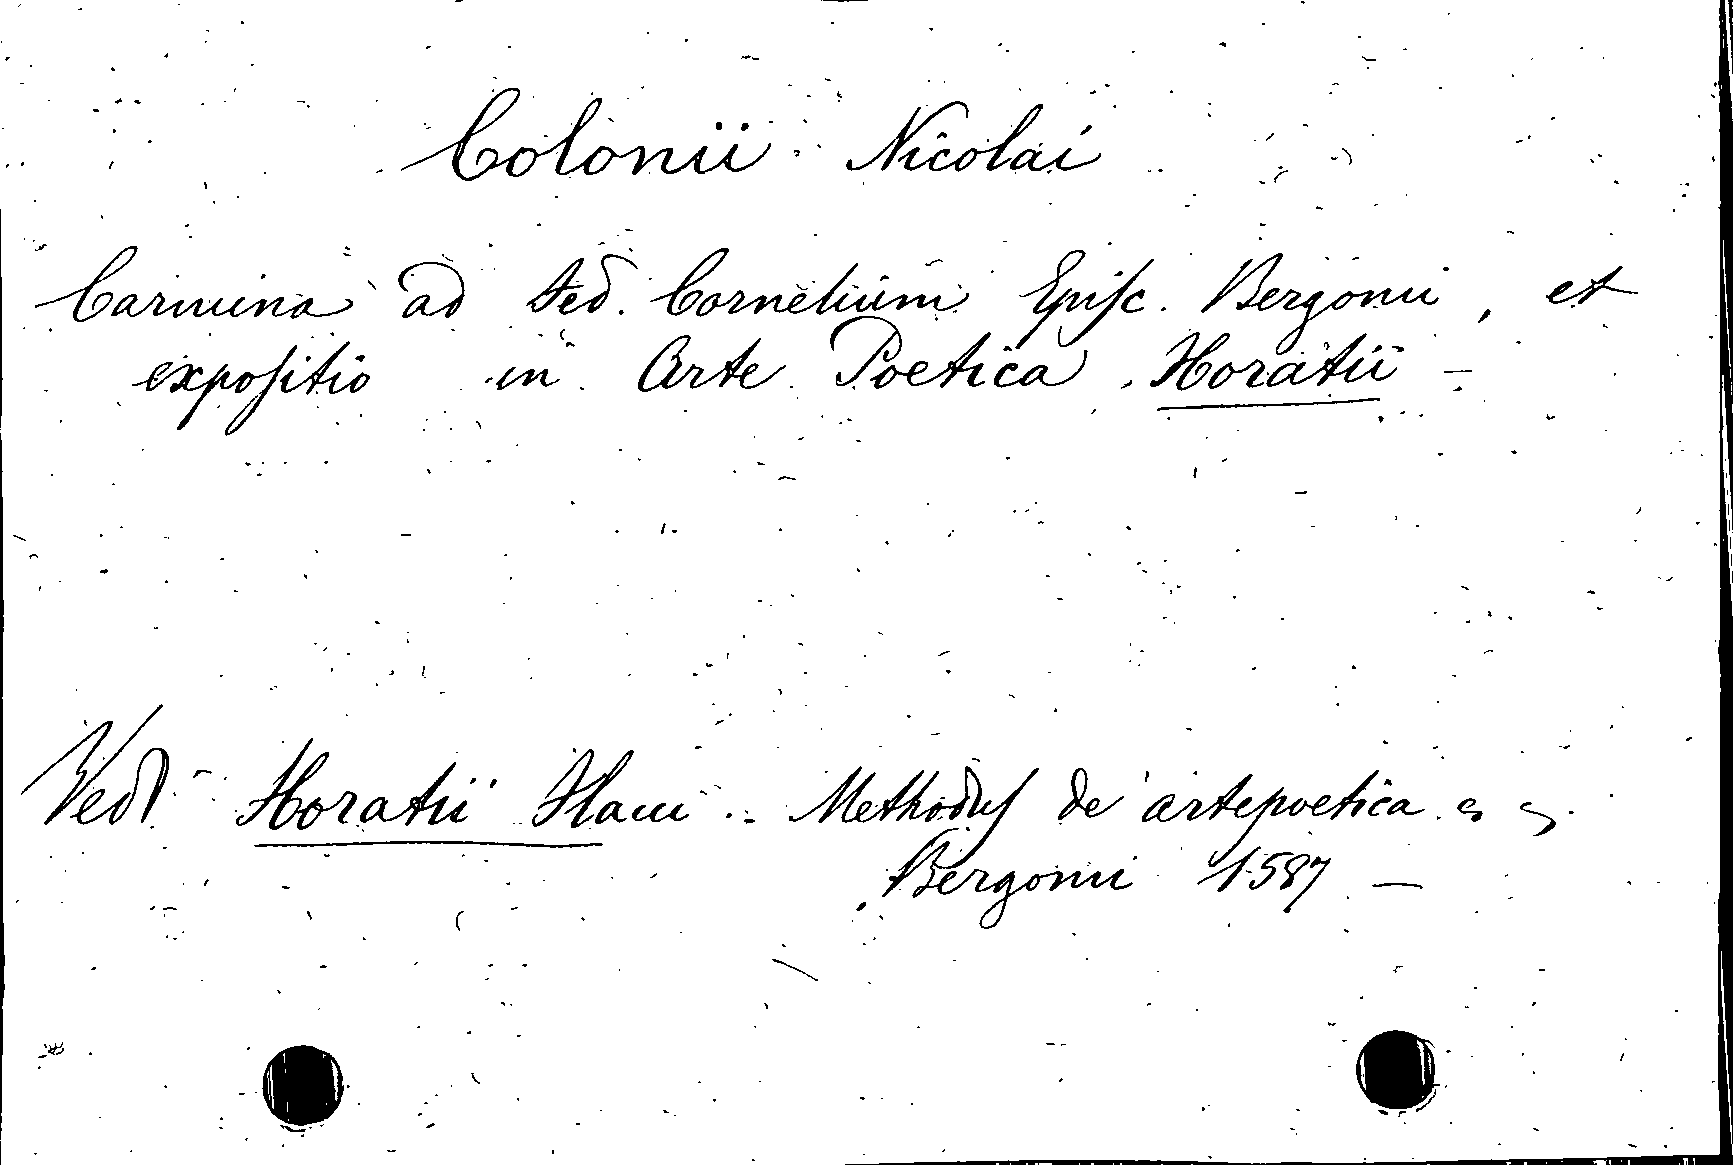 Colonii Nicolai
Carmina ad Fed. Cornelium Episc. Bergomi, et
expositio in Arte Poetica Horatii -
Vedi Horatii Flacci .. Methodus de artepoetica
Bergomi 1587 —